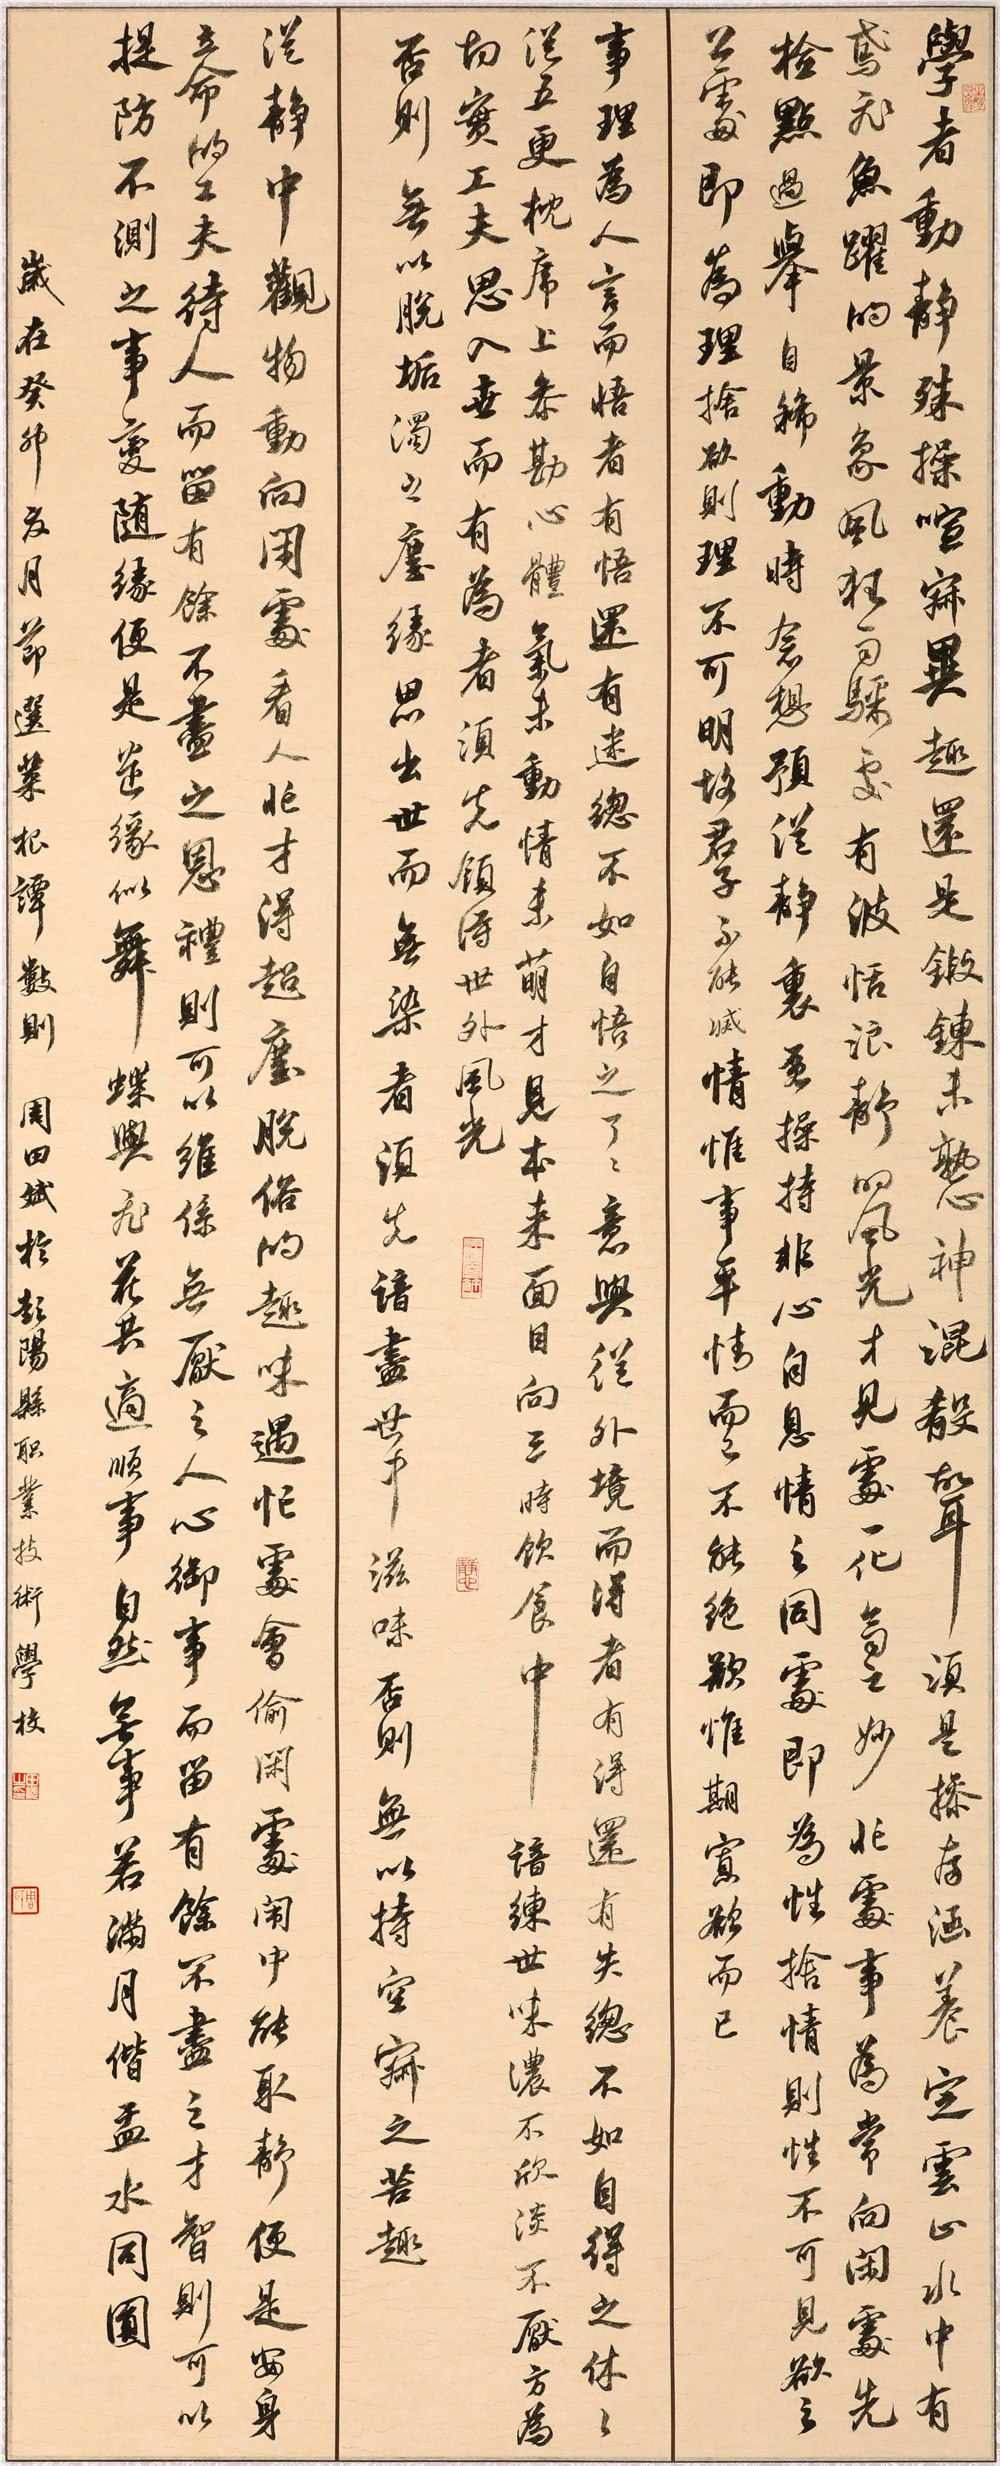 學者動靜殊操喧寂異趣還是鍛鍊未熟心神混殽故耳須是操存涵養定雲止水中有
鳶飛魚躍的景象風狂雨驟處有波恬浪靜的風光才見處一化齊之妙忙處事為常向閑處先
檢點過舉自稀動時念想預從靜裏密操持非心自息情之同處即為性捨情則性不可見欲之
公處即為理捨欲則理不可明故君子不能滅情惟事平情而已不能絕欲惟期寡欲而已
事理為人言而悟者有悟還有迷總不如自悟之了了意興從外境而得者有得還有失總不如自得之休休
從五更枕席上參勘心體氣未動情未萌才見本來面目向三時飲食中諳練世味濃不欣淡不厭方為
切實工夫思入世而有為者須先領得世外風光
否則無以脫垢濁之塵緣思出世而無染者須先諳盡世中滋味否則無以持空寂之苦趣
從靜中觀物動向閑處看人忙才得超塵脫俗的趣味遇忙處會偷閑處鬧中能取靜便是安身
立命的工夫待人而留有餘不盡之恩禮則可以維係無厭之人心御事而留有餘不盡之才智則可以
提防不測之事變隨緣便是遣緣似舞蝶與飛花共適順事自然無事若滿月偕盂水同圓
歲在癸卯夏月節選菜根譚數則 周田斌於彭陽縣职業技術學校